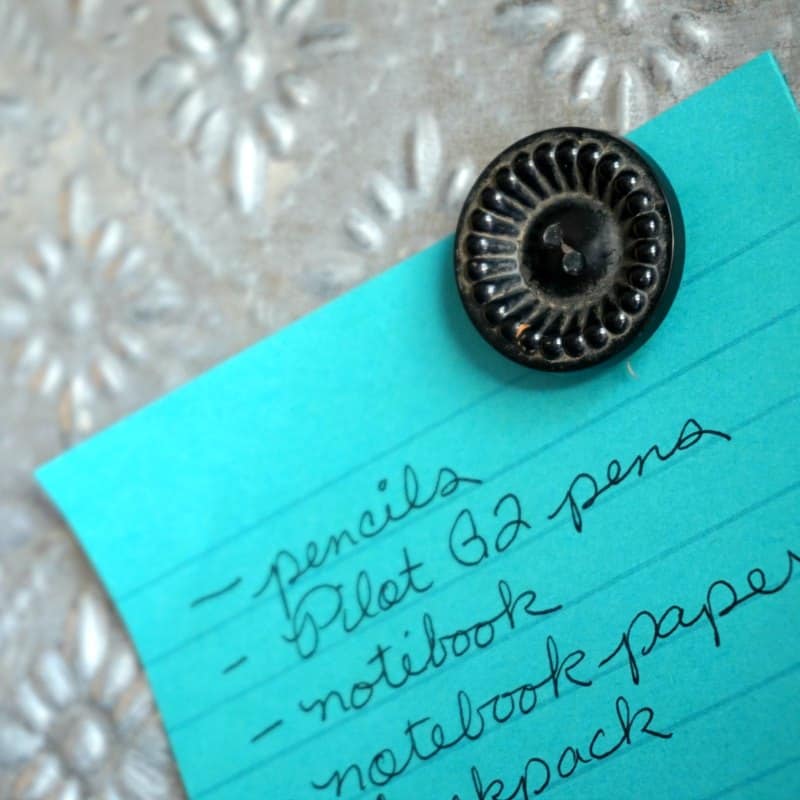 - pencils
- Pilot G2 pens
- notebook
notebook paper